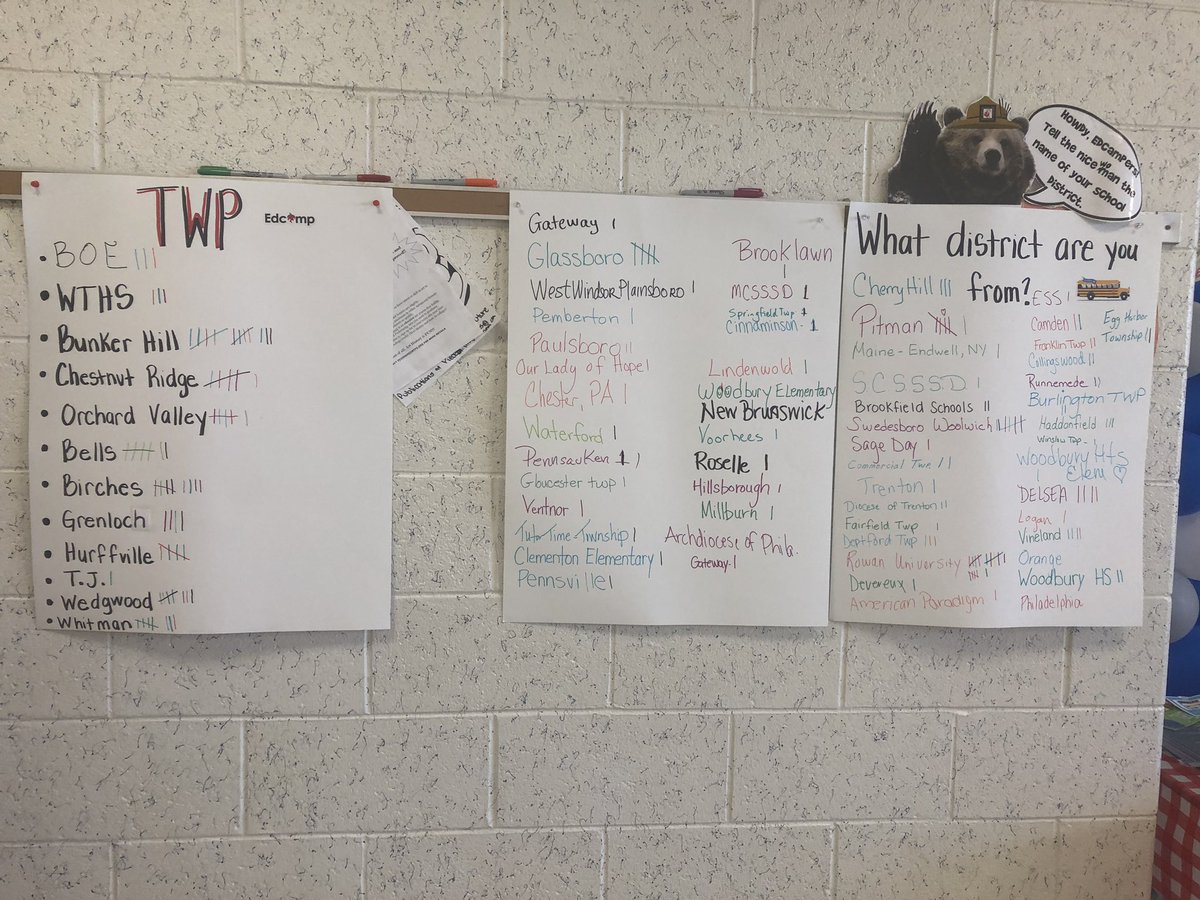 TWP
Edcamp
• BOE |||
• WTHS |||
• Bunker Hill 𝍸 𝍸 |||
• Chestnut Ridge 𝍸 |
• Orchard Valley 𝍸 |
• Bells 𝍸 ||
• Birches 𝍸 ||||
• Grenloch ||||
• Hurffville 𝍸
• T.J. |
• Wedgwood 𝍸 |||
• Whitman 𝍸 |||
Gateway |
Glassboro 𝍸
West Windsor Plainsboro |
Pemberton |
Paulsboro ||
Our Lady of Hope |
Chester, PA |
Waterford |
Pennsauken 1 |
Gloucester twp |
Ventnor |
Tuto Time Twnship |
Clementon Elementary |
Pennsville |
Brooklawn
|
MCSSSD 1
Springfield Twp 1
Cinnaminson - 1
Lindenwold |
Woodbury Elementary
New Brunswick
Voorhees |
Roselle |
Hillsborough |
Millburn |
Archdiocese of Phila.
Gateway - |
What district are you
from?
Cherry Hill |||
Pitman 𝍸 |
Maine-Endwell, NY |
SCSSSD |
Brookfield Schools ||
Swedesboro Woolwich || 𝍸
Sage Day |
Commercial Twp ||
Trenton |
Diocese of Trenton ||
Fairfield Twp |
Deptford Twp |||
Rowan University 𝍸 𝍸
𝍸 |
Devereux |
American Paradigm |
ESS |
Camden ||
Egg Harbor
Township ||
Franklin Twp ||
Collingswood ||
Runnemede ||
Burlington TWP
||
Haddonfield |||
Winslow Twp -
Woodbury Hts
Elem ♡
DELSEA ||||
Logan |
Vineland ||||
Orange
Woodbury HS ||
Philadelphia
Howdy, Edcampers!
Tell the nice wo
man the
name of your school
District.